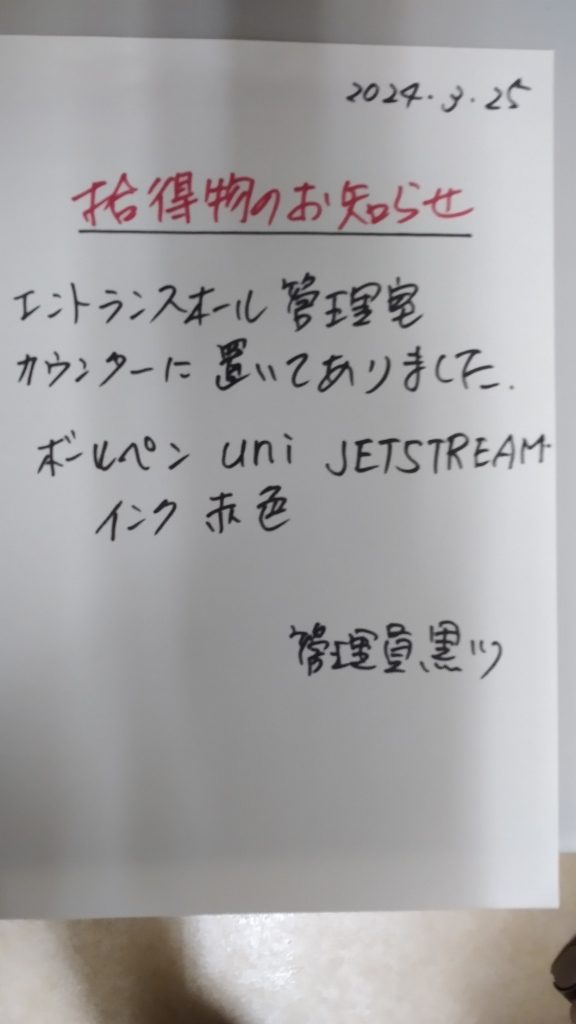 2024.3.25
拾得物のお知らせ
エントランスホール 管理室
カウンターに 置いてありました.
ボールペン uni JETSTREAM
インク 赤色
管理員 黒川